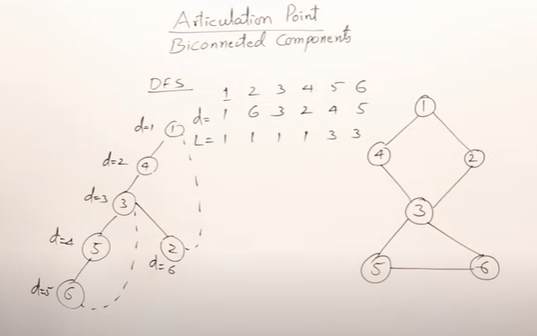 Articulation Point
Biconnected Components
DFS
1 2 3 4 5 6
d= 1 6 3 2 4 5
L= 1 1 1 1 3 3
d=1 1
d=2 4
d=3 3
d=4 5
2
d=6
d=5 6
1
4 2
3
5 6